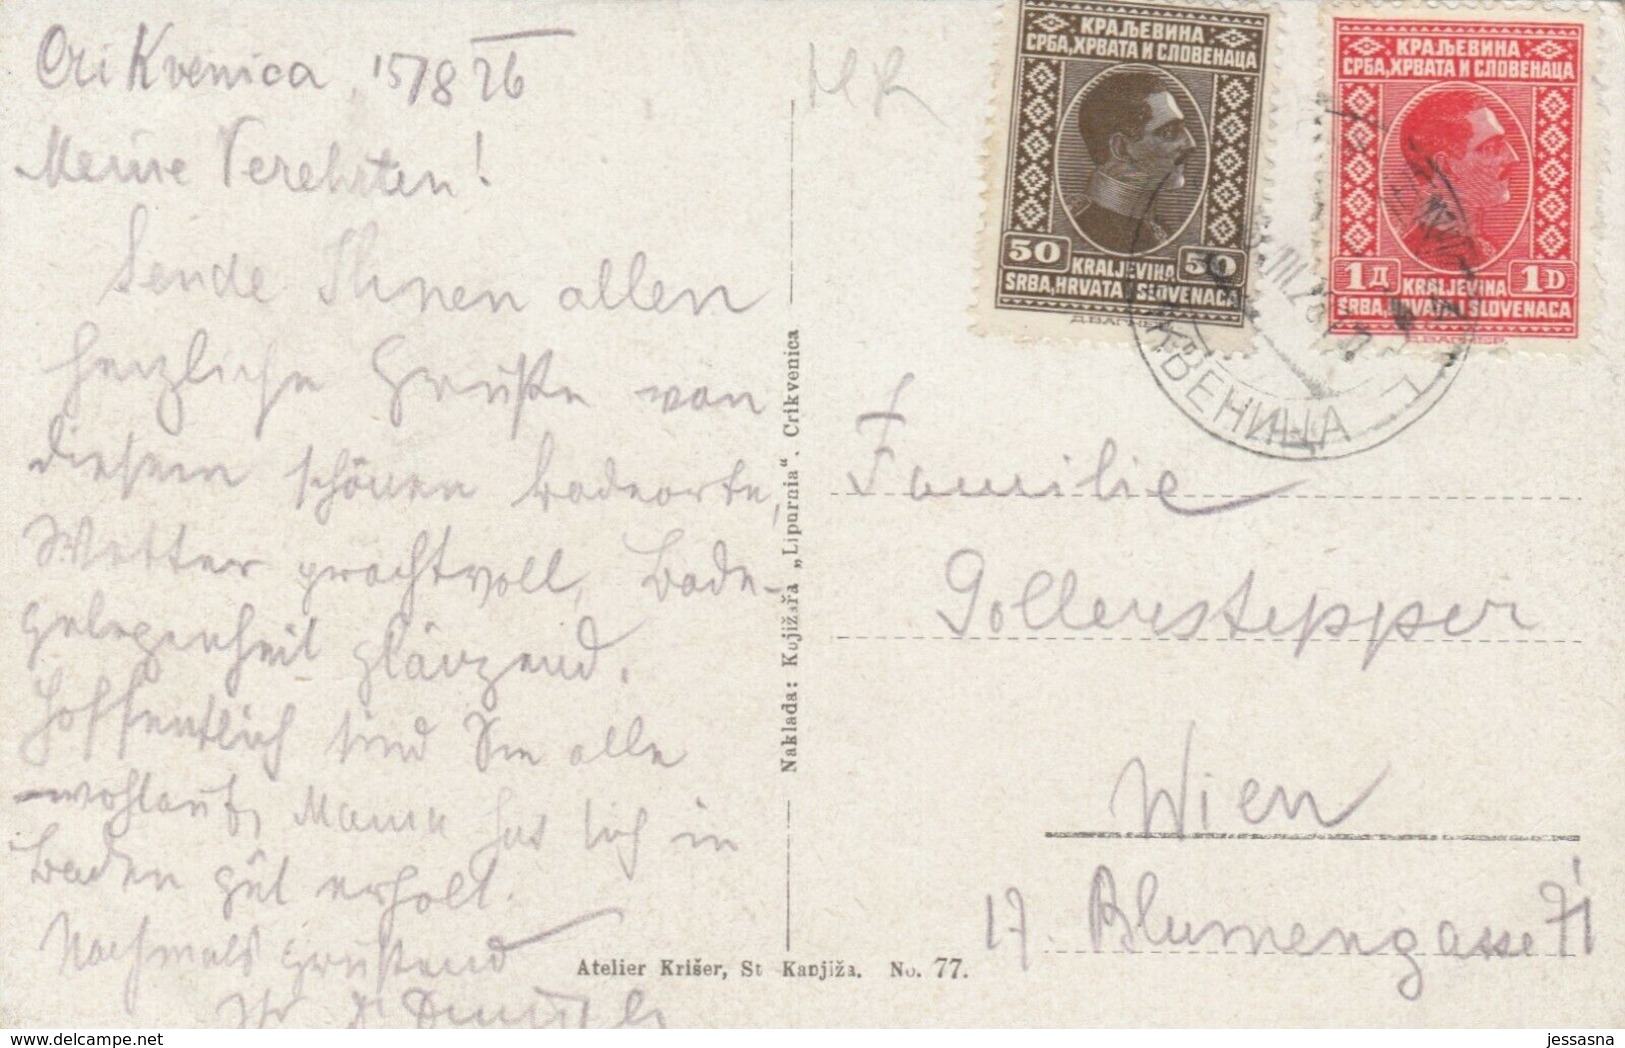 Crikvenica, 15/8 26
Meine Verehrten!
Sende Ihnen allen
herzliche Grüße von
diesem schönen Badeorte,
Wetter prachtvoll, Bade-
gelegenheit glänzend.
Hoffentlich sind Sie alle
wohlauf, Mama hat sich in
Baden gut erholt.
Nachmals grüßend
Ihr
Naklada: Knjižara „Lipurnia“. Crikvenica
Atelier Krišer, St Kanjiža. No. 77.
КРАЉЕВИНА
СРБА, ХРВАТА И СЛОВЕНАЦА
50 50
KRALJEVINA
SRBA, HRVATA I SLOVENACA
КРАЉЕВИНА
СРБА, ХРВАТА И СЛОВЕНАЦА
1Д 1D
KRALJEVINA
SRBA, HRVATA I SLOVENACA
КВЕНИЦА
Familie
Gollerstepper
Wien
17. Blumengasse 71
jessasna